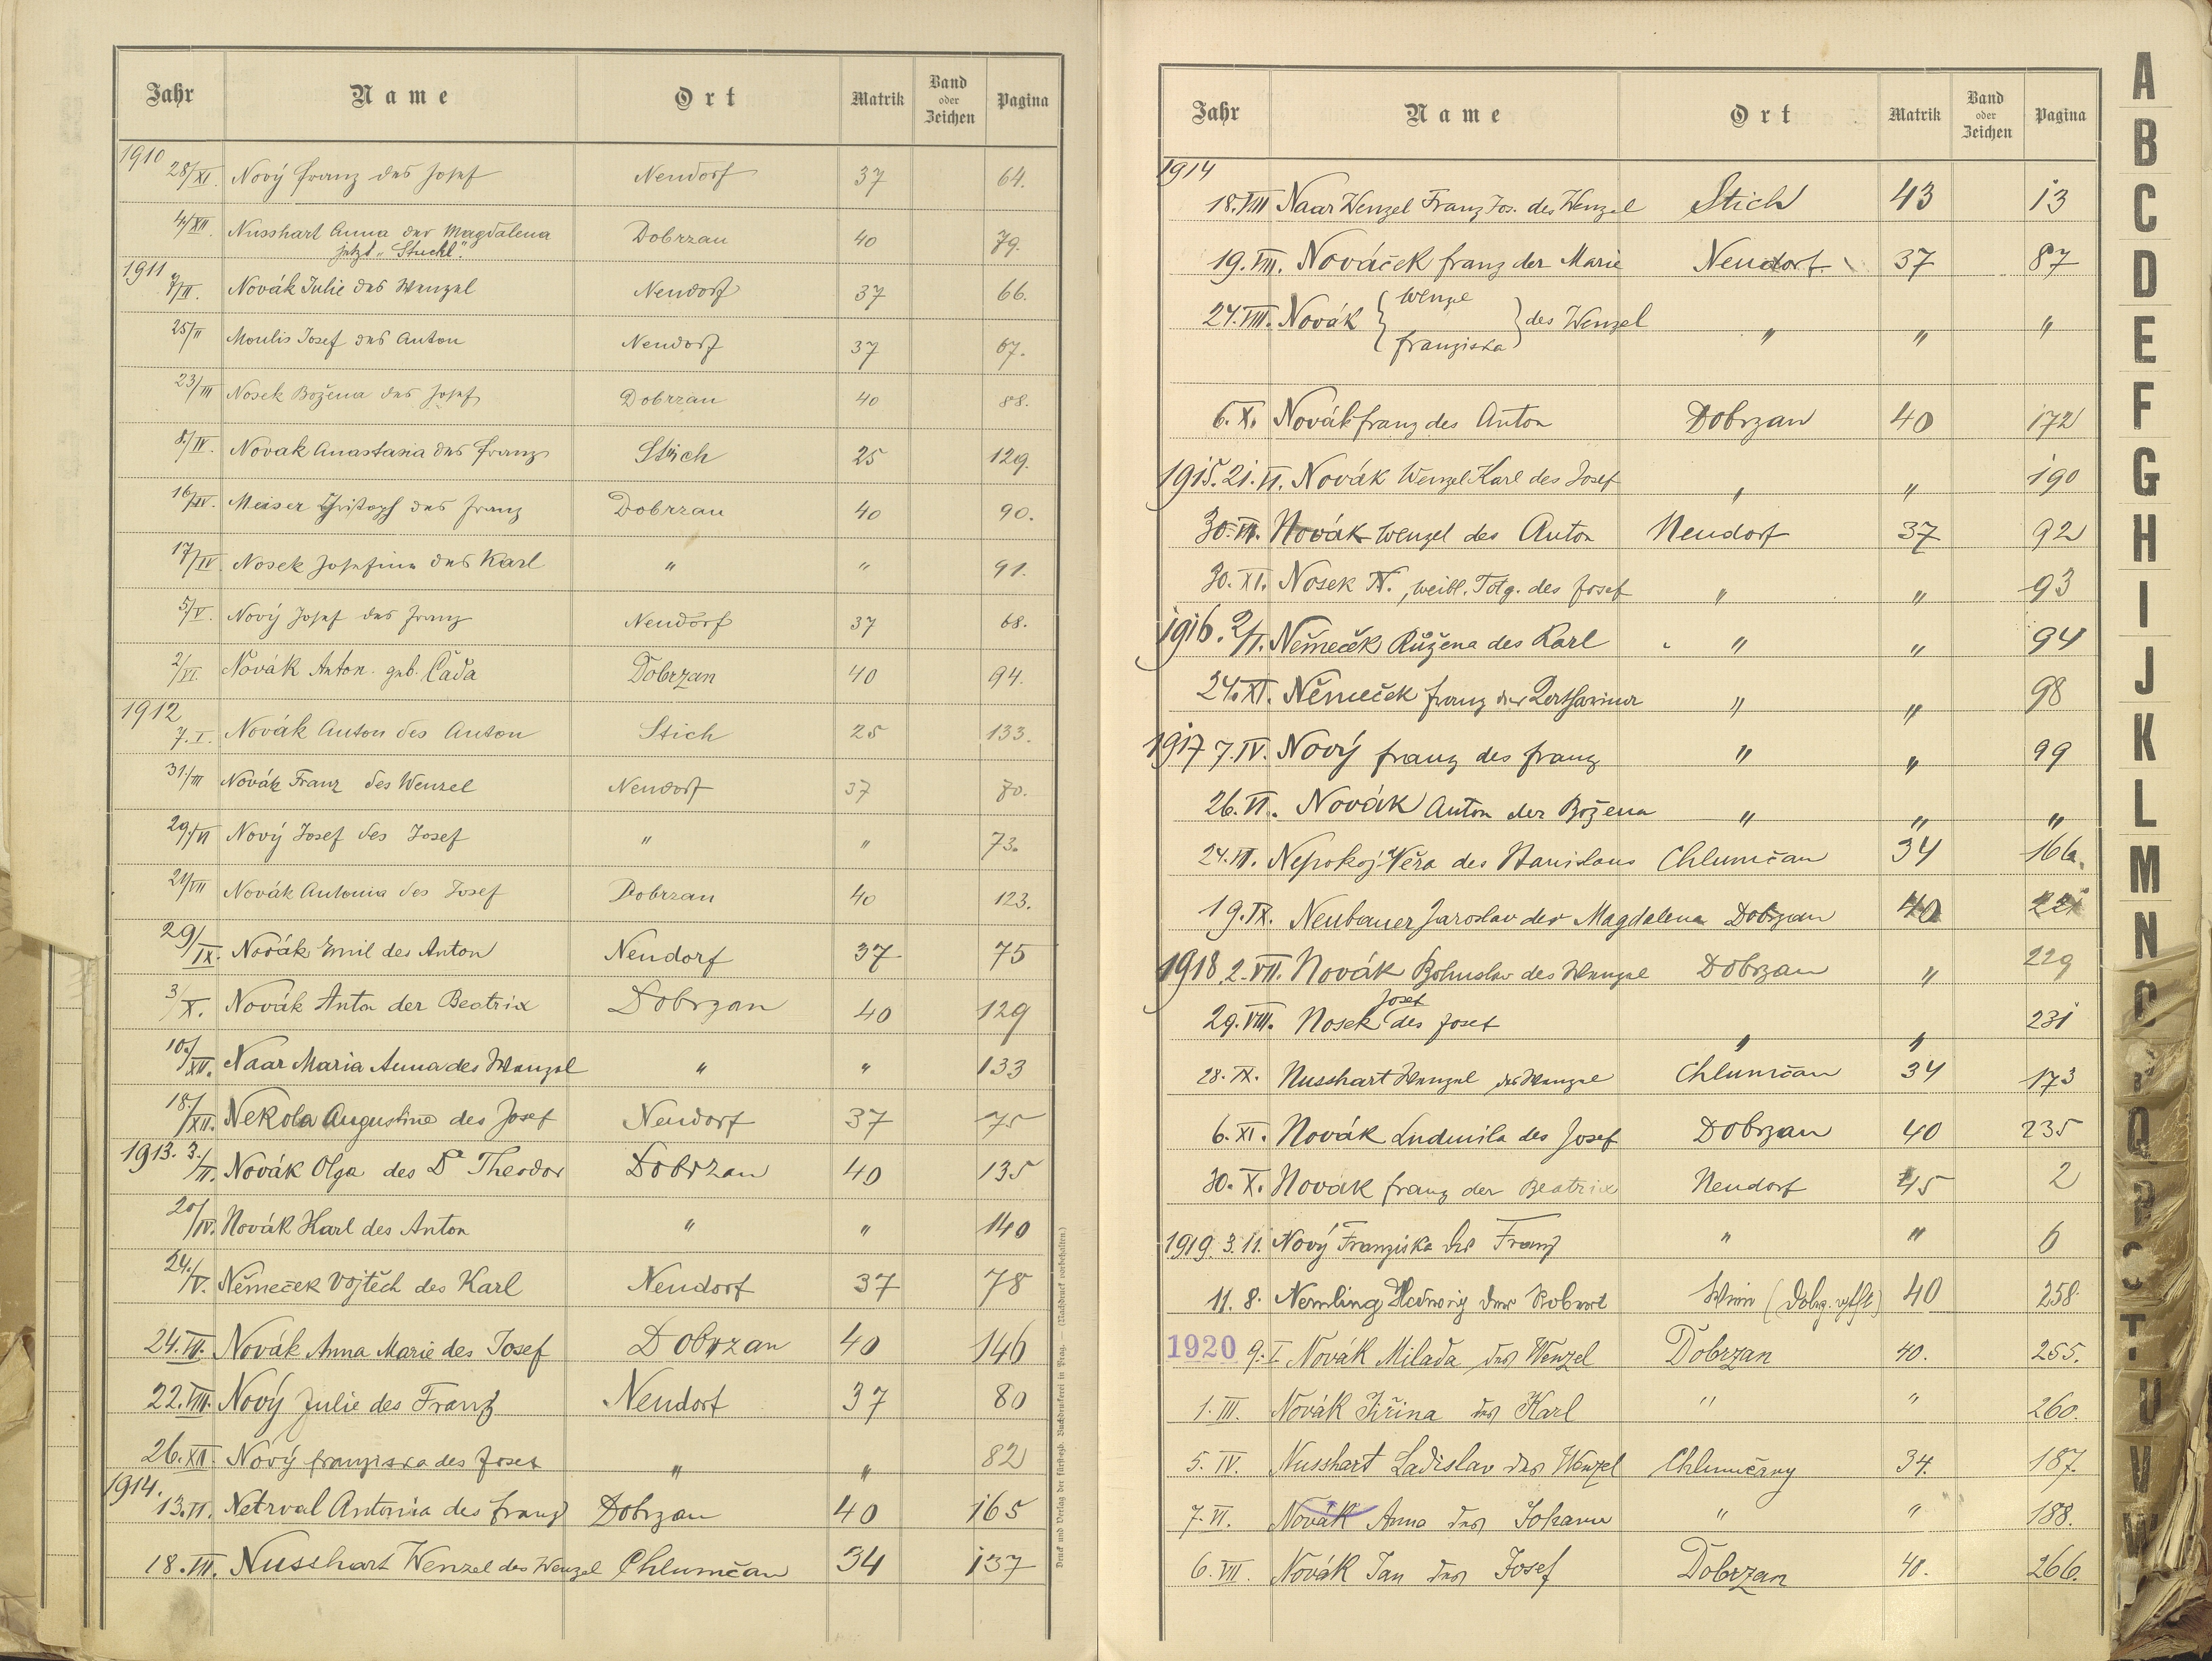 Jahr Name Ort Matrik Band oder Zeichen Pagina
1910
28/XI. Nový Franz des Josef Neudorf 37 64.
4/XII. Nusshart Anna der Magdalena Dobrzan 40 79.
jetzt „Stuchl".
1911
7/II. Novák Julie des Wenzel Neudorf 37 66.
25/II Moulis Josef des Anton Neudorf 37 67.
23/III Nosek Božena des Josef Dobrzan 40 88.
8./IV. Novak Anastasia des Franz Stich 25 129.
16/IV. Meiser Christoph des Franz Dobrzan 40 90.
17/IV Nosek Josefine des Karl " " 91.
5/V. Nový Josef des Franz Neudorf 37 68.
2/VI. Novák Anton. geb. Čada Dobrzan 40 94.
1912
7. I. Novák Anton des Anton Stich 25 133.
31./III Novák Franz des Wenzel Neudorf 37 70.
29./VI Nový Josef des Josef " " 73.
21/VII Novák Antonia des Josef Dobrzan 40 123.
29/IX. Novák Emil des Anton Neudorf 37 75
3/X. Novák Anton der Beatrix Dobrzan 40 129
10./XII. Naar Maria Anna des Wenzel " " 133
18./XII. Nekola Augustine des Josef Neudorf 37 75
1913. 3./II. Novák Olga des Dr Theodor Dobrzan 40 135
20/IV. Novák Karl des Anton " " 140
24./V. Němeček Vojtěch des Karl Neudorf 37 78
24. VI. Novák Anna Marie des Josef Dobrzan 40 146
22. VIII. Nový Julie des Franz Neudorf 37 80
26. XII. Nový Franziska des Josef " " 82
1914.
13. VI. Netrval Antonia des Franz Dobrzan 40 165
18. VII. Nusshart Wenzel des Wenzel Chlumčan 34 137
Druck und Verlag der fürsterzb. Buchdruckerei in Prag. — (Nachdruck vorbehalten.)
Jahr Name Ort Matrik Band oder Zeichen Pagina
1914
18. VIII Naar Wenzel Franz Jos. des Wenzel Stich 43 13
19. VIII. Nováček Franz der Marie Neudorf 37 87
24. VIII. Novák { Wenzel Franziska } des Wenzel " " "
6. X. Novák Franz des Anton Dobrzan 40 172
1915. 21. VI. Novák Wenzel Karl des Josef " " 190
30. VII. Novák Wenzel des Anton Neudorf 37 92
30. XI. Nosek N., weibl. Totg. des Josef " " 93
1916. 2/VI. Němeček Růžena des Karl " " 94
24. XI. Němeček Franz der Katharina " " 98
1917 7. IV. Nový Franz des Franz " " 99
26. VI. Novák Anton der Božena " " "
24. VI. Nepokoj Věra des Stanislaus Chlumčan 34 166.
19. IX. Neubauer Jaroslav der Magdalena Dobrzan 40 221
1918. 2. VII. Novák Bohuslav des Wenzel Dobrzan " 229
29. VIII. Nosek Josef des Josef " " 231
28. IX. Nusshart Wenzel des Wenzel Chlumčan 34 173
6. XI. Novák Ludmila des Josef Dobrzan 40 235
30. X. Novák Franz der Beatrix Neudorf 45 2
1919. 3. 11. Nový Franziska des Franz " " 6
11. 8. Nemling Hedwig des Robert Wien 40 258.
1920 9. I Novák Milada des Wenzel Dobrzan 40. 255.
1. III. Novák Jiřina des Karl " " 260.
5. IV. Nusshart Ladislav des Wenzel Chlumčany 34. 187.
7. VI. Novák Anna des Johann " " 188.
6. VII. Novák Jan des Josef Dobrzan 40. 266.
A
B
C
D
E
F
G
H
I
J
K
L
M
N
Q
T
U
V
W